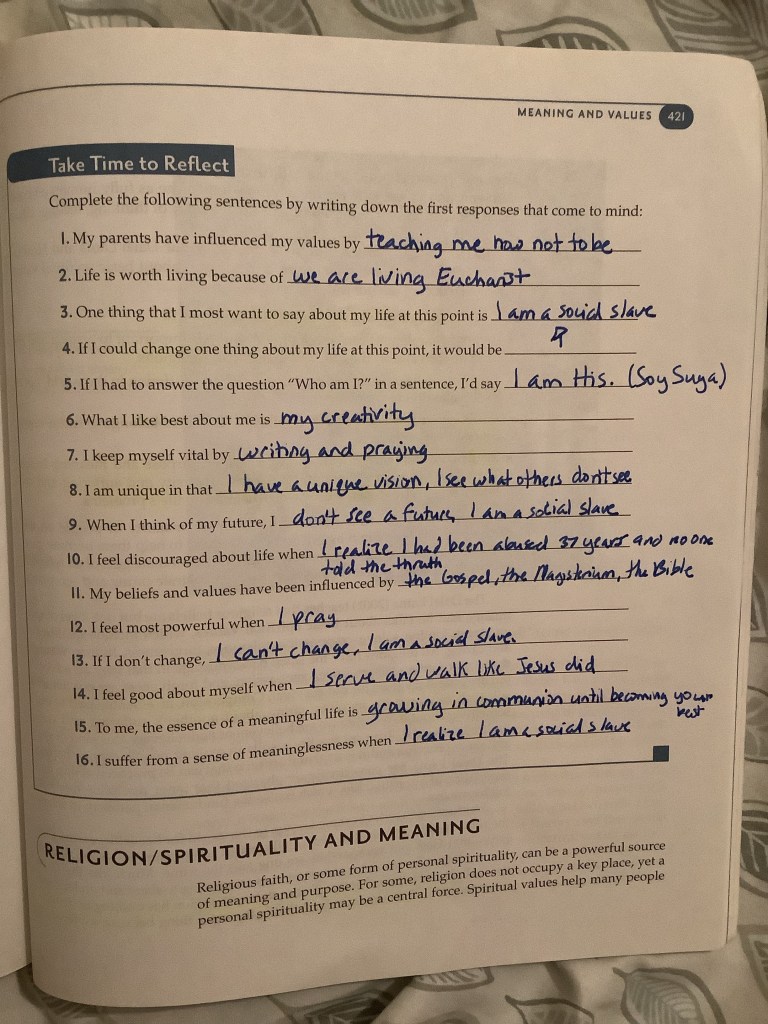 MEANING AND VALUES 421
Take Time to Reflect
Complete the following sentences by writing down the first responses that come to mind:
1. My parents have influenced my values by teaching me how not to be
2. Life is worth living because of we are living Eucharist
3. One thing that I most want to say about my life at this point is I am a social slave
4. If I could change one thing about my life at this point, it would be
5. If I had to answer the question "Who am I?" in a sentence, I'd say I am His. (Soy Suya)
6. What I like best about me is my creativity
7. I keep myself vital by writing and praying
8. I am unique in that I have a unique vision, I see what others dont see
9. When I think of my future, I don't see a future, I am a social slave
10. I feel discouraged about life when I realize I had been abused 37 years and no one
told the thruth
11. My beliefs and values have been influenced by the Gospel, the Magisterium, the Bible
12. I feel most powerful when I pray
13. If I don't change, I can't change, I am a social slave.
14. I feel good about myself when I serve and walk like Jesus did
15. To me, the essence of a meaningful life is growing in communion until becoming your
best
16. I suffer from a sense of meaninglessness when I realize I am a social slave
RELIGION/SPIRITUALITY AND MEANING
Religious faith, or some form of personal spirituality, can be a powerful source
of meaning and purpose. For some, religion does not occupy a key place, yet a
personal spirituality may be a central force. Spiritual values help many people